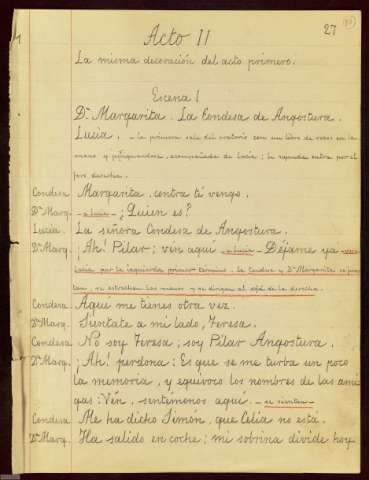 27
Acto II
La misma decoración del acto primero.
Escena 1
Dª Margarita. La Condesa de Angostura.
Lucía. - la primera sale del oratorio con un libro de rezos en la
mano y persignándose, acompañada de Lucía; la segunda entra por el
foro derecha.
Condesa Margarita, contra tí vengo.
Dª Marg. - a Lucía - ¿Quien es?
Lucía. La señora Condesa de Angostura.
Dª Marg. ¡Ah! Pilar; vén aquí - a Lucía - Déjame ya -
Lucía por la izquierda primer término. La Condesa y Dª Margarita se
se estrechan las manos y se dirigen al sofá de la derecha.
Condesa Aquí me tienes otra vez.
Dª Marg. Siéntate a mi lado, Teresa.
Condesa No soy Teresa; soy Pilar Angostura.
Dª Marg. ¡Ah! perdona: Es que se me turba un poco
la memoria, y equivoco los nombres de las ami
gas: Vén, sentémonos aquí. - se sientan -
Condesa Me ha dicho Simón, que Celia no está.
Dª Marg. Ha salido en coche; mi sobrina divide hoy